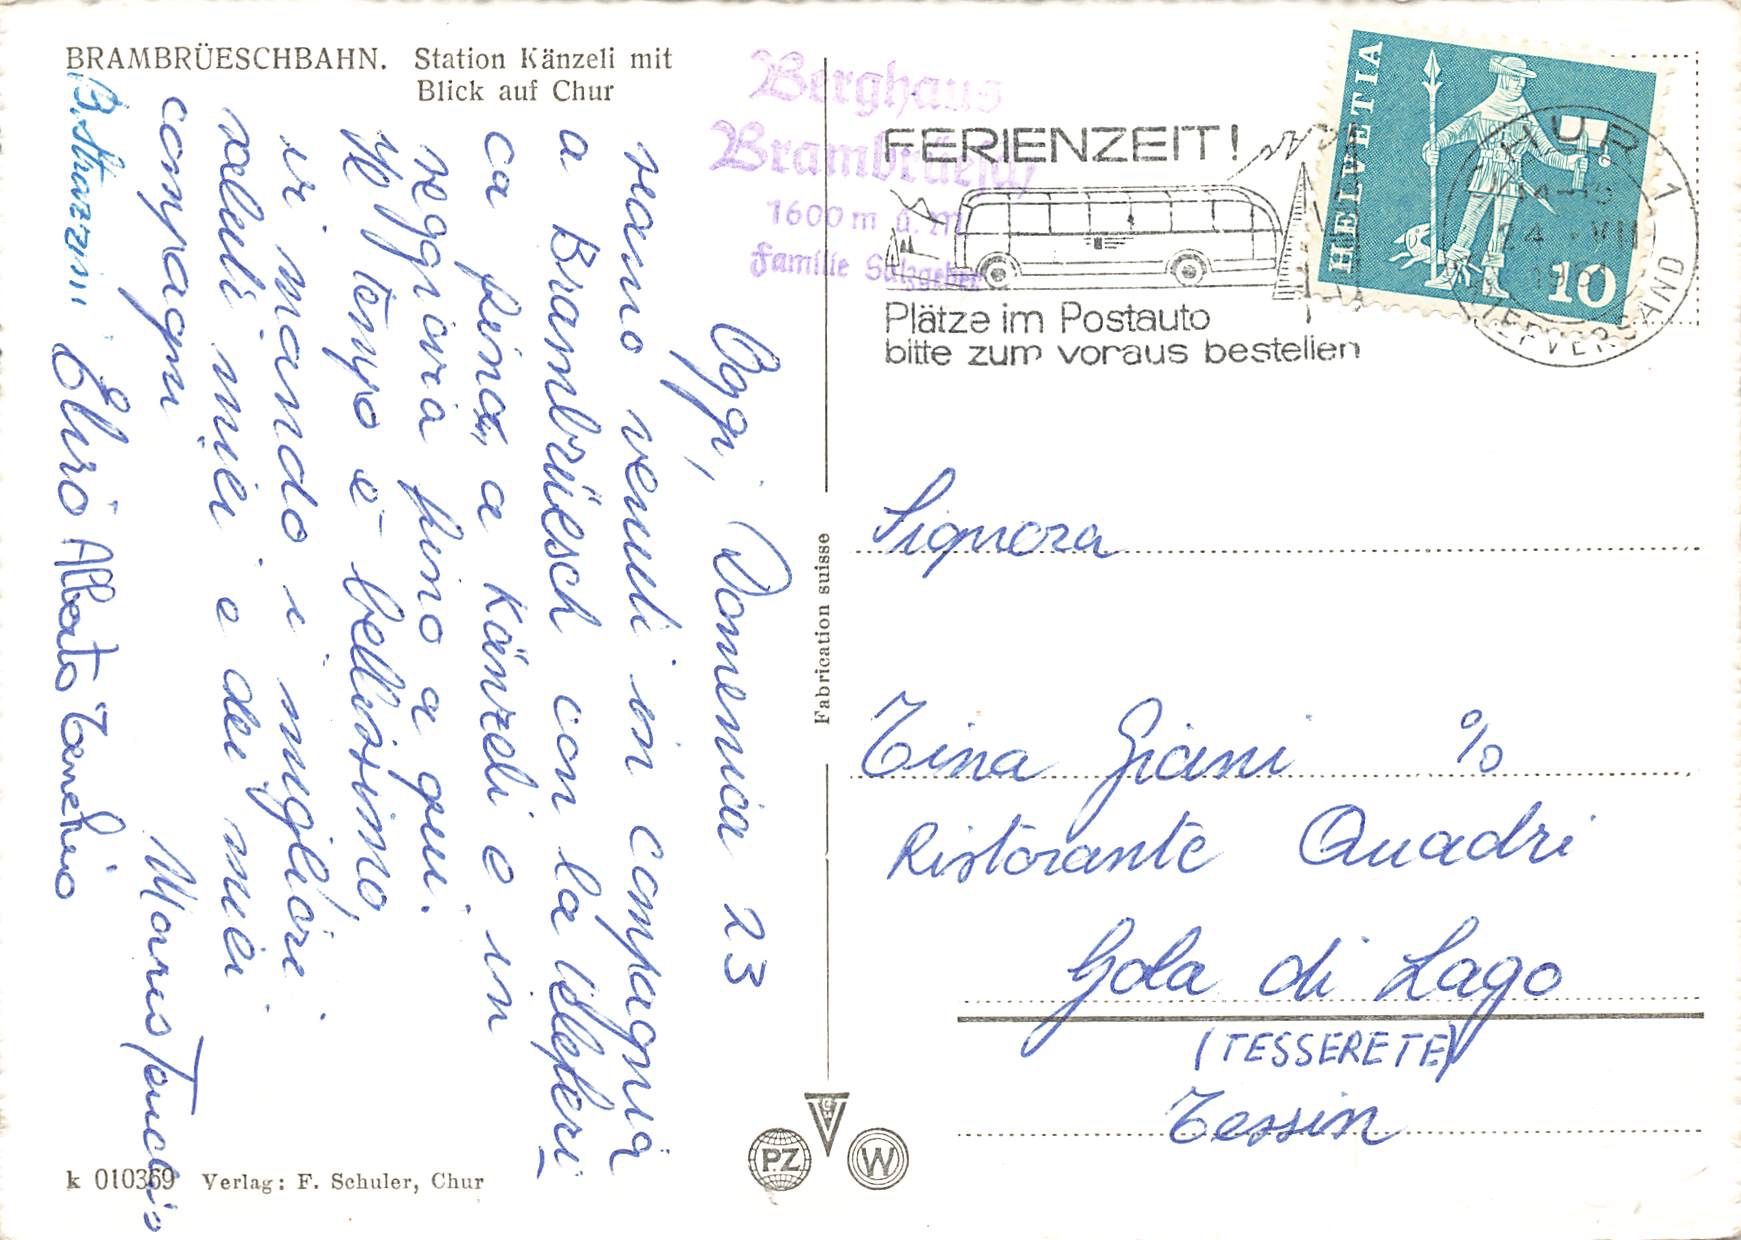 BRAMBRÜESCHBAHN. Station Känzeli mit
Blick auf Chur
Berghaus
Brambrüesch
1600 m ü. M.
Familie Salzgeber
FERIENZEIT!
Plätze im Postauto
bitte zum voraus bestellen
HELVETIA
10
CHUR 1
24. VII
BRIEFVERSAND
Oggi, Domenica 23
siamo venuti in compagnia
a Brambrüesch con la teleferi
ca fino, a Känzeli e in
seggiovia fino a qui.
Il tempo è bellissimo
vi mando i migliori
saluti miei e dei miei
compagni
B. Strazzini
Alberto
Signora
Tina Giani c/o
Ristorante Quadri
Gola di Lago
(TESSERETE)
Tessin
Fabrication suisse
PZ
W
k 010369 Verlag: F. Schuler, Chur